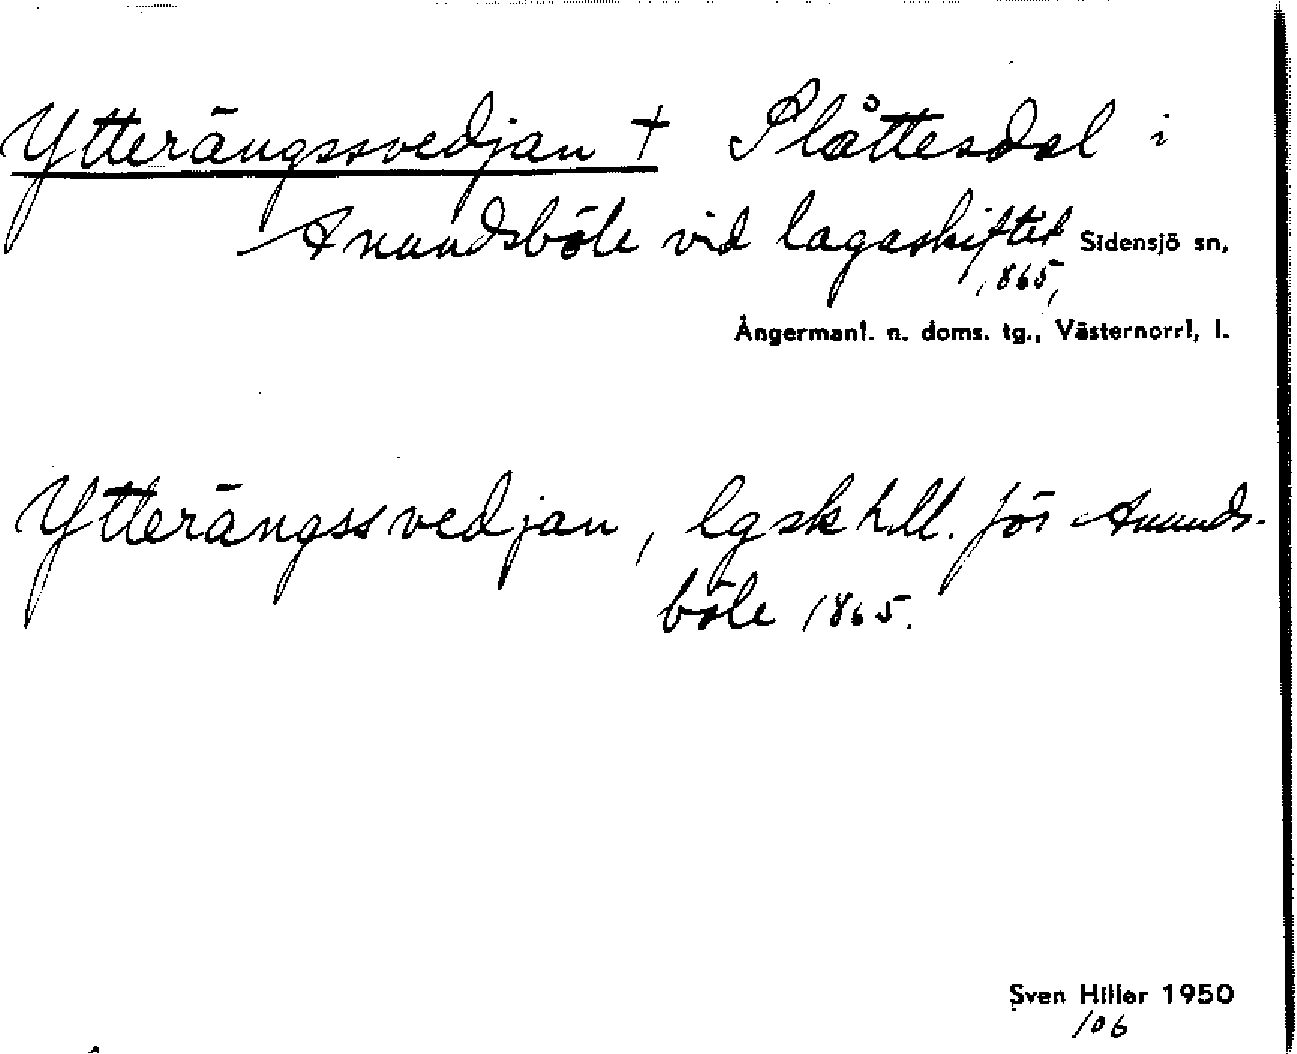 Ytterängssvedjan + Slåttesdal i
Anundsböle vid lagaskiftet Sidensjö sn,
1865,
Ångermanl. n. doms. tg., Västernorrl, l.
Ytterängssvedjan, lgsk hdl. för Anunds-
böle 1865.
Sven Hiller 1950
106